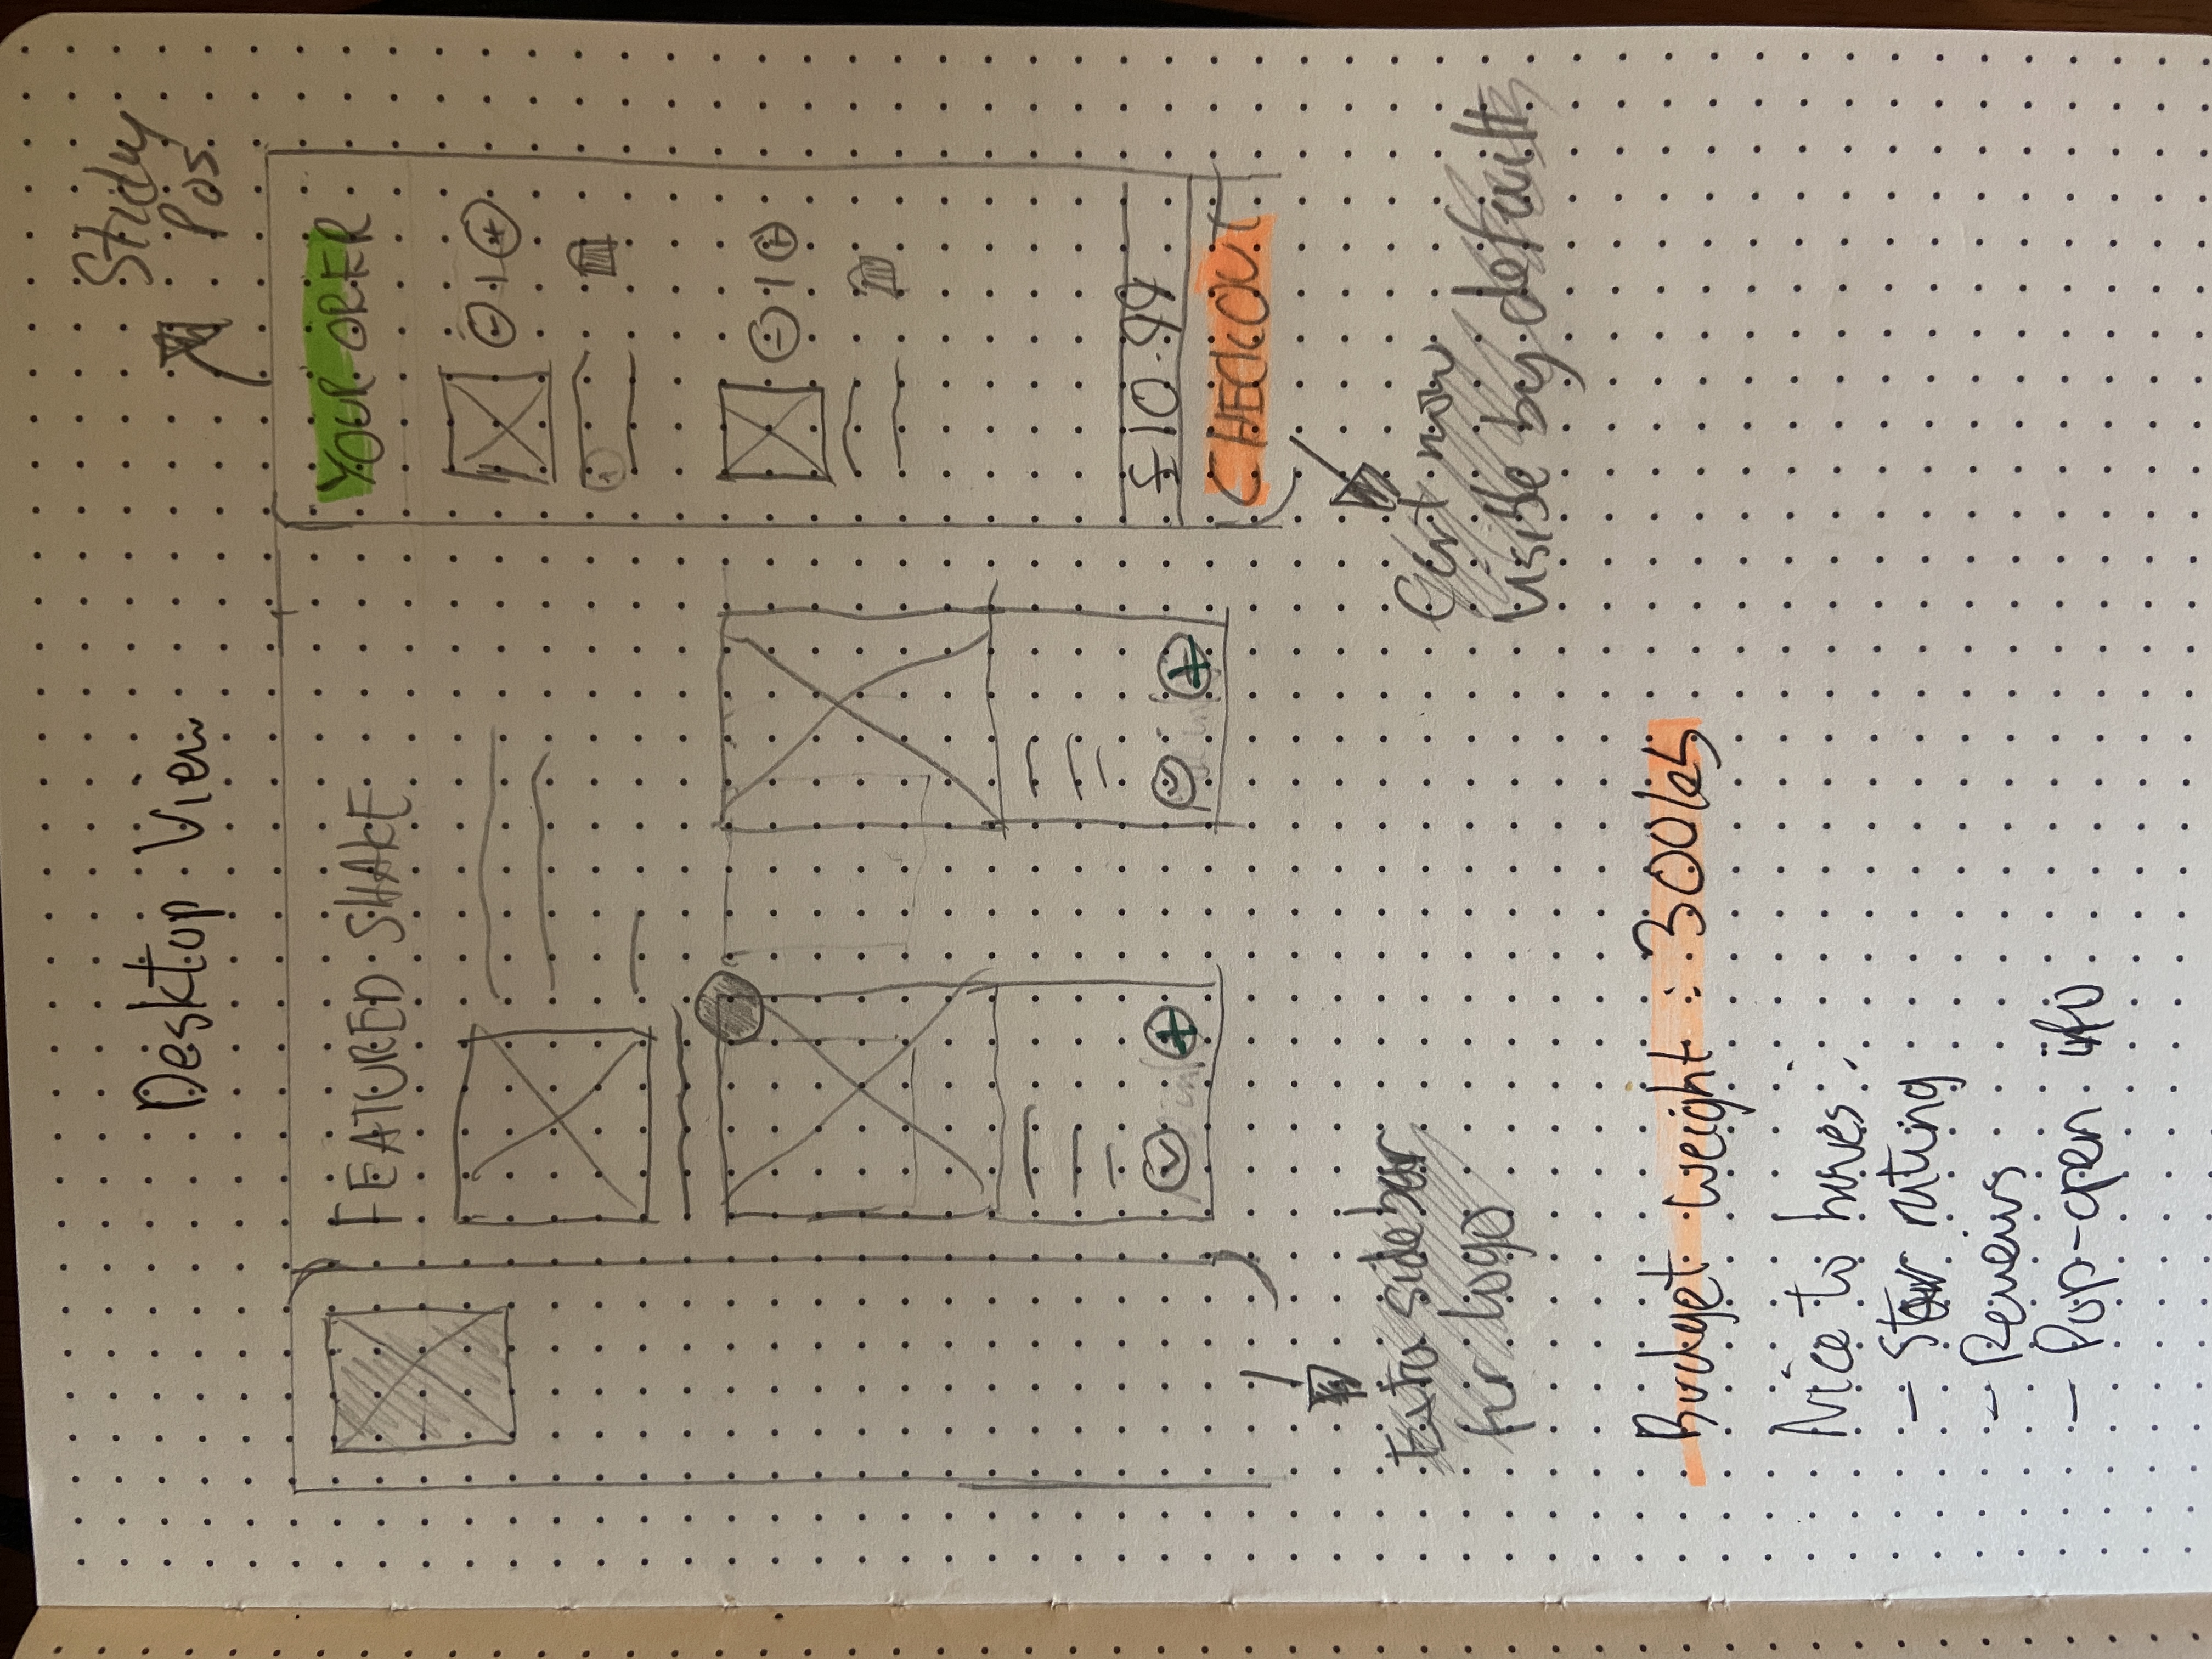 Desktop View
Sticky
Pos.
FEATURED SHAKE
YOUR ORER
- 1 +
- 1 +
£10.99
CHECKOUT
Extra sidebar
for logo
Cart now
visible by default
Budget weight : 300kb
Nice to haves:
- Star rating
- Reviews
- Pop-open info